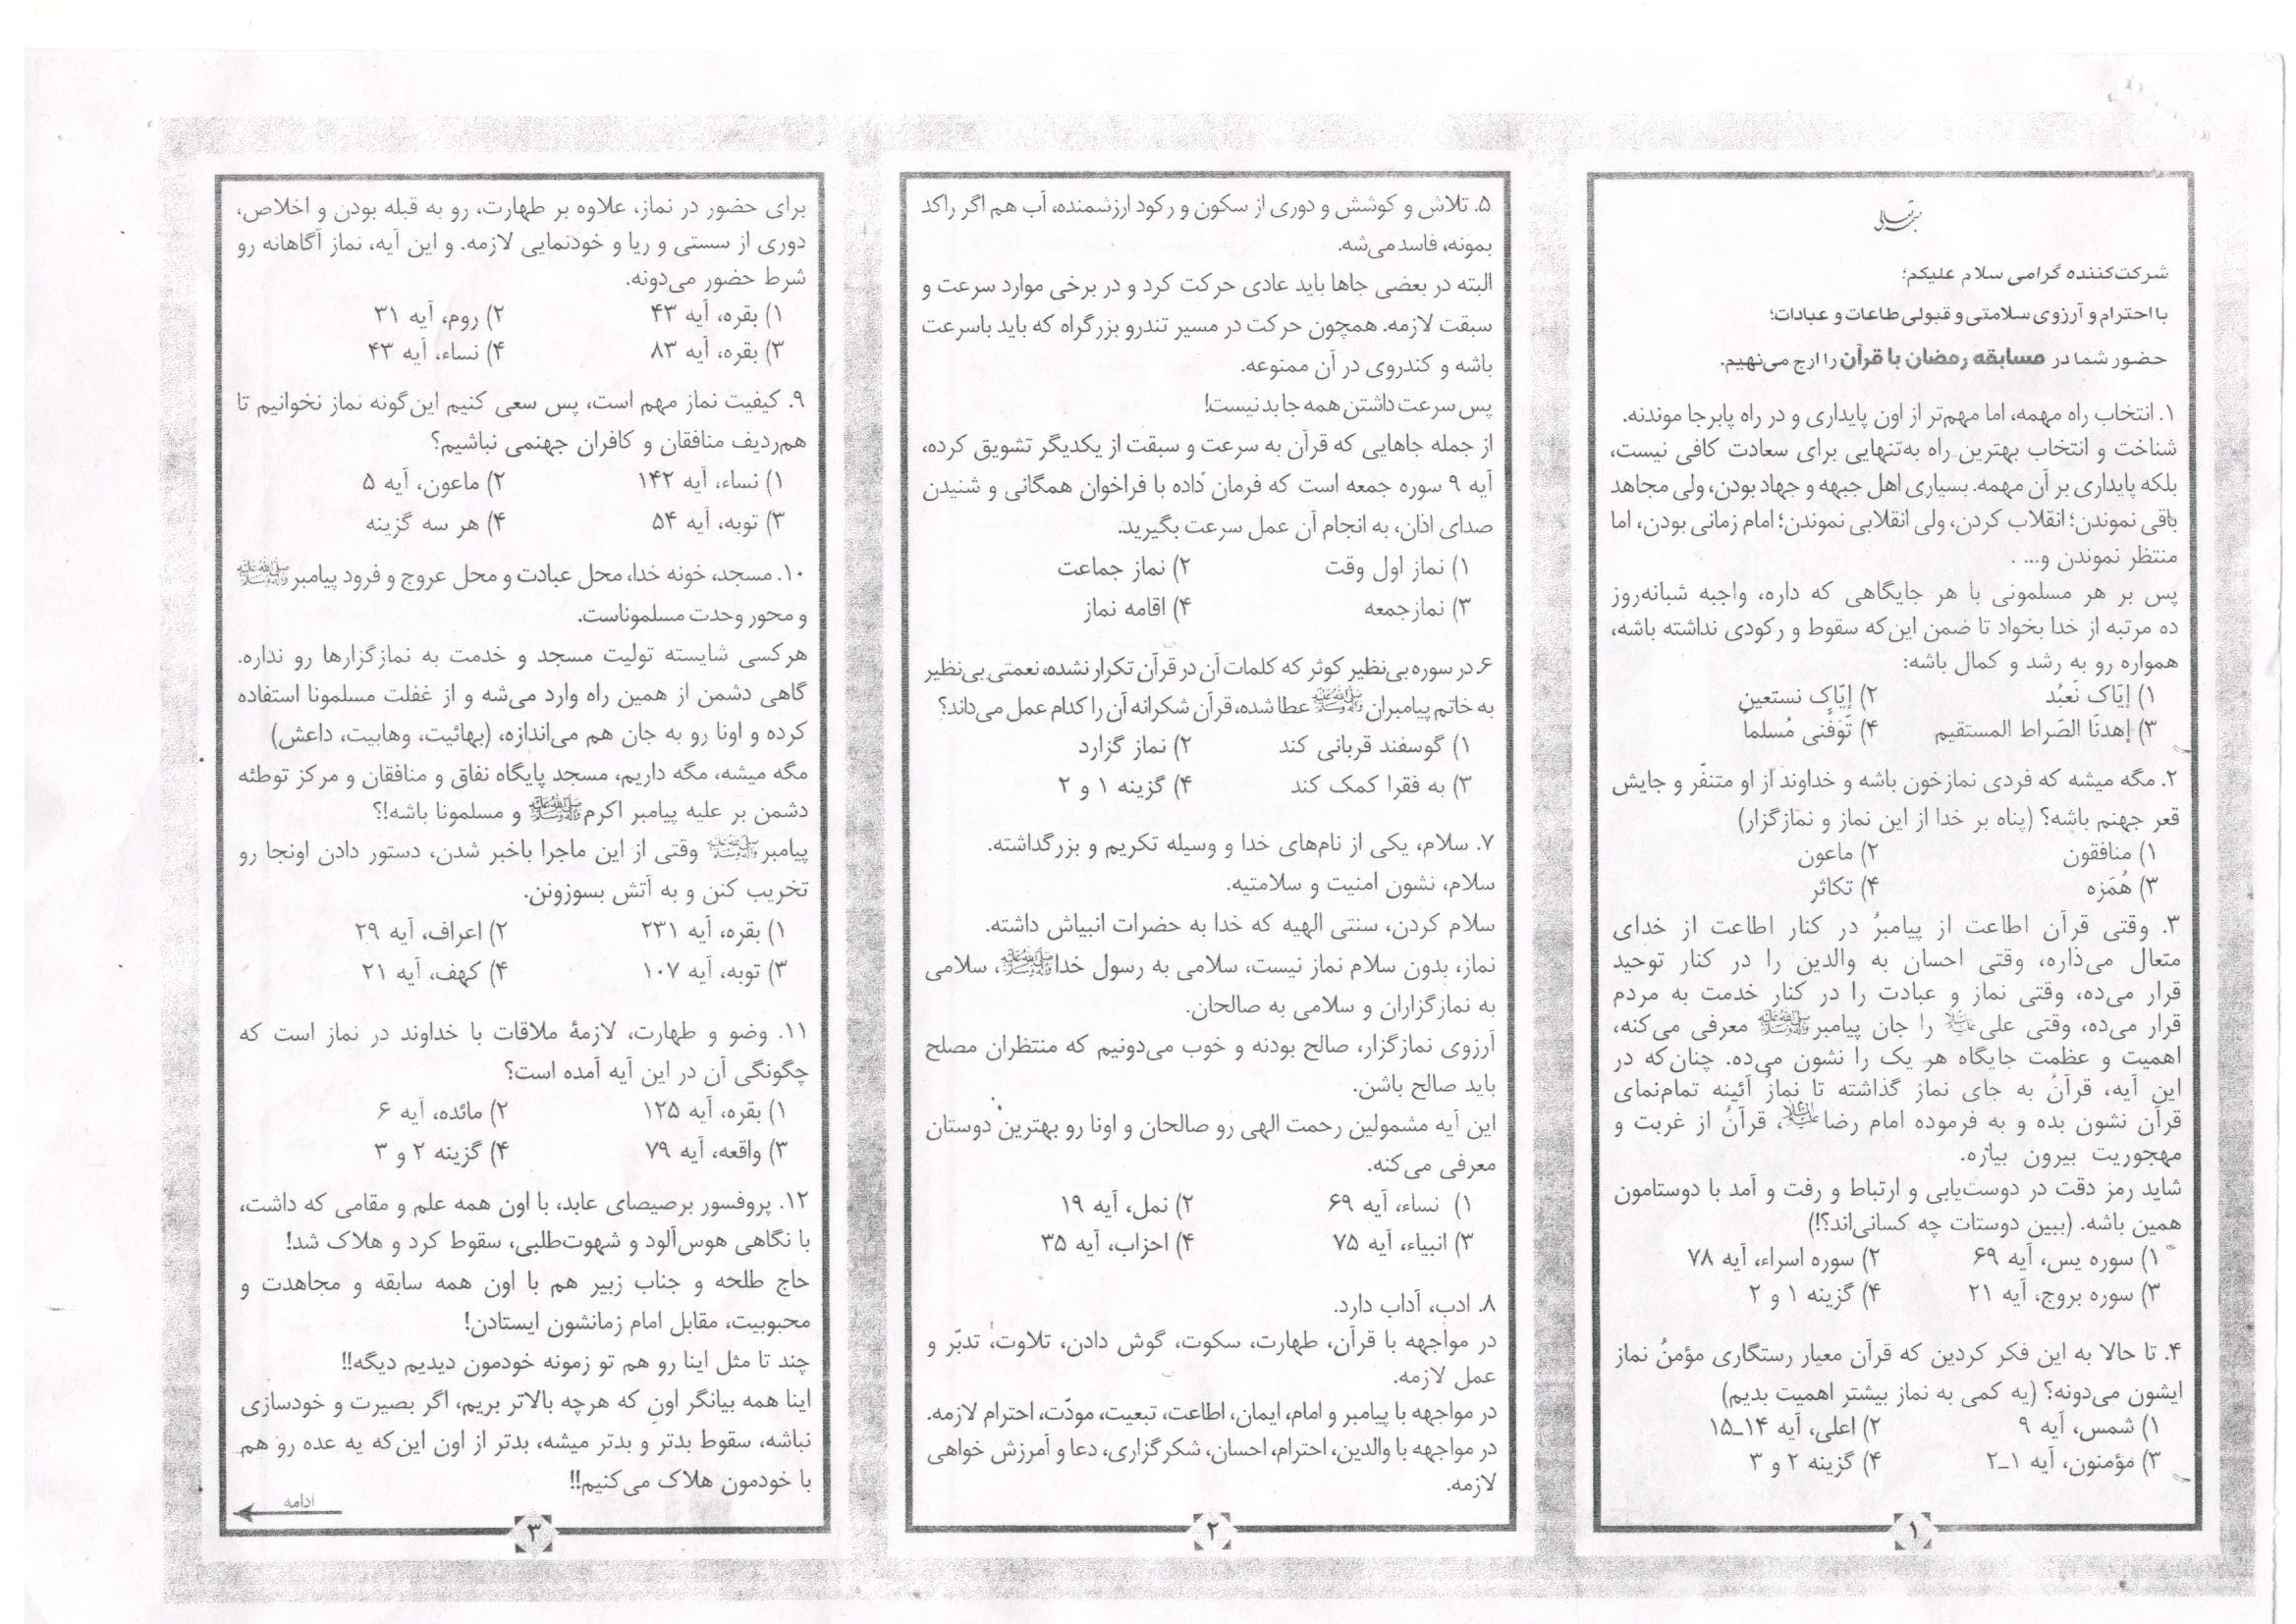 بسمه تعالی
شرکت‌کننده گرامی سلام علیکم؛
با احترام و آرزوی سلامتی و قبولی طاعات و عبادات؛
حضور شما در مسابقه رمضان با قرآن را ارج می‌نهیم.
۱. انتخاب راه مهمه، اما مهم‌تر از اون پایداری و در راه پابرجا موندنه.
شناخت و انتخاب بهترین راه به‌تنهایی برای سعادت کافی نیست،
بلکه پایداری بر آن مهمه. بسیاری اهل جبهه و جهاد بودن، ولی مجاهد
باقی نموندن؛ انقلاب کردن، ولی انقلابی نموندن؛ امام زمانی بودن، اما
منتظر نموندن و... .
پس بر هر مسلمونی با هر جایگاهی که داره، واجبه شبانه‌روز
ده مرتبه از خدا بخواد تا ضمن این‌که سقوط و رکودی نداشته باشه،
همواره رو به رشد و کمال باشه:
۱) إیّاک نَعبُد ۲) إیّاک نستعین
۳) إهدنَا الصَراط المستقیم ۴) تَوَفَّنی مُسلماً
۲. مگه میشه که فردی نمازخون باشه و خداوند از او متنفّر و جایش
قعر جهنم باشه؟ (پناه بر خدا از این نماز و نمازگزار)
۱) منافقون ۲) ماعون
۳) هُمَزه ۴) تکاثر
۳. وقتی قرآن اطاعت از پیامبرُ در کنار اطاعت از خدای
متعال می‌ذاره، وقتی احسان به والدین را در کنار توحید
قرار می‌ده، وقتی نماز و عبادت را در کنار خدمت به مردم
قرار می‌ده، وقتی علی علیه‌السلام را جان پیامبر ﷺ معرفی می‌کنه،
اهمیت و عظمت جایگاه هر یک را نشون می‌ده. چنان‌که در
این آیه، قرآنُ به جای نماز گذاشته تا نمازُ آئینه تمام‌نمای
قرآن نشون بده و به فرموده امام رضا علیه‌السلام، قرآنُ از غربت و
مهجوریت بیرون بیاره.
شاید رمز دقت در دوست‌یابی و ارتباط و رفت و آمد با دوستامون
همین باشه. (ببین دوستات چه کسانی‌اند؟!)
۱) سوره یس، آیه ۶۹ ۲) سوره اسراء، آیه ۷۸
۳) سوره بروج، آیه ۲۱ ۴) گزینه ۱ و ۲
۴. تا حالا به این فکر کردین که قرآن معیار رستگاری مؤمنُ نماز
ایشون می‌دونه؟ (یه کمی به نماز بیشتر اهمیت بدیم)
۱) شمس، آیه ۹ ۲) اعلی، آیه ۱۴ـ۱۵
۳) مؤمنون، آیه ۱ـ۲ ۴) گزینه ۲ و ۳
۱
۵. تلاش و کوشش و دوری از سکون و رکود ارزشمنده، آب هم اگر راکد
بمونه، فاسد می‌شه.
البته در بعضی جاها باید عادی حرکت کرد و در برخی موارد سرعت و
سبقت لازمه. همچون حرکت در مسیر تندرو بزرگراه که باید باسرعت
باشه و کندروی در آن ممنوعه.
پس سرعت داشتن همه جا بد نیست!
از جمله جاهایی که قرآن به سرعت و سبقت از یکدیگر تشویق کرده،
آیه ۹ سوره جمعه است که فرمان داده با فراخوان همگانی و شنیدن
صدای اذان، به انجام آن عمل سرعت بگیرید.
۱) نماز اول وقت ۲) نماز جماعت
۳) نمازجمعه ۴) اقامه نماز
۶. در سوره بی‌نظیر کوثر که کلمات آن در قرآن تکرار نشده، نعمتی بی‌نظیر
به خاتم پیامبران ﷺ عطا شده، قرآن شکرانه آن را کدام عمل می‌داند؟
۱) گوسفند قربانی کند ۲) نماز گزارد
۳) به فقرا کمک کند ۴) گزینه ۱ و ۲
۷. سلام، یکی از نام‌های خدا و وسیله تکریم و بزرگداشته.
سلام، نشون امنیت و سلامتیه.
سلام کردن، سنتی الهیه که خدا به حضرات انبیاش داشته.
نماز، بدون سلام نماز نیست، سلامی به رسول خدا ﷺ، سلامی
به نمازگزاران و سلامی به صالحان.
آرزوی نمازگزار، صالح بودنه و خوب می‌دونیم که منتظران مصلح
باید صالح باشن.
این آیه مشمولین رحمت الهی رو صالحان و اونا رو بهترین دوستان
معرفی می‌کنه.
۱) نساء، آیه ۶۹ ۲) نمل، آیه ۱۹
۳) انبیاء، آیه ۷۵ ۴) احزاب، آیه ۳۵
۸. ادب، آداب دارد.
در مواجهه با قرآن، طهارت، سکوت، گوش دادن، تلاوت، تدبّر و
عمل لازمه.
در مواجهه با پیامبر و امام، ایمان، اطاعت، تبعیت، مودّت، احترام لازمه.
در مواجهه با والدین، احترام، احسان، شکرگزاری، دعا و آمرزش خواهی
لازمه.
۲
برای حضور در نماز، علاوه بر طهارت، رو به قبله بودن و اخلاص،
دوری از سستی و ریا و خودنمایی لازمه. و این آیه، نماز آگاهانه رو
شرط حضور می‌دونه.
۱) بقره، آیه ۴۳ ۲) روم، آیه ۳۱
۳) بقره، آیه ۸۳ ۴) نساء، آیه ۴۳
۹. کیفیت نماز مهم است، پس سعی کنیم این‌گونه نماز نخوانیم تا
هم‌ردیف منافقان و کافران جهنمی نباشیم؟
۱) نساء، آیه ۱۴۲ ۲) ماعون، آیه ۵
۳) توبه، آیه ۵۴ ۴) هر سه گزینه
۱۰. مسجد، خونه خدا، محل عبادت و محل عروج و فرود پیامبر ﷺ
و محور وحدت مسلموناست.
هرکسی شایسته تولیت مسجد و خدمت به نمازگزارها رو نداره.
گاهی دشمن از همین راه وارد می‌شه و از غفلت مسلمونا استفاده
کرده و اونا رو به جان هم می‌اندازه، (بهائیت، وهابیت، داعش)
مگه میشه، مگه داریم، مسجد پایگاه نفاق و منافقان و مرکز توطئه
دشمن بر علیه پیامبر اکرم ﷺ و مسلمونا باشه!؟
پیامبر ﷺ وقتی از این ماجرا باخبر شدن، دستور دادن اونجا رو
تخریب کنن و به آتش بسوزونن.
۱) بقره، آیه ۲۳۱ ۲) اعراف، آیه ۲۹
۳) توبه، آیه ۱۰۷ ۴) کهف، آیه ۲۱
۱۱. وضو و طهارت، لازمهٔ ملاقات با خداوند در نماز است که
چگونگی آن در این آیه آمده است؟
۱) بقره، آیه ۱۲۵ ۲) مائده، آیه ۶
۳) واقعه، آیه ۷۹ ۴) گزینه ۲ و ۳
۱۲. پروفسور برصیصای عابد، با اون همه علم و مقامی که داشت،
با نگاهی هوس‌آلود و شهوت‌طلبی، سقوط کرد و هلاک شد!
حاج طلحه و جناب زبیر هم با اون همه سابقه و مجاهدت و
محبوبیت، مقابل امام زمانشون ایستادن!
چند تا مثل اینا رو هم تو زمونه خودمون دیدیم دیگه!!
اینا همه بیانگر اونِ که هرچه بالاتر بریم، اگر بصیرت و خودسازی
نباشه، سقوط بدتر و بدتر میشه، بدتر از اون این‌که یه عده رو هم
با خودمون هلاک می‌کنیم!!
ادامه
۳